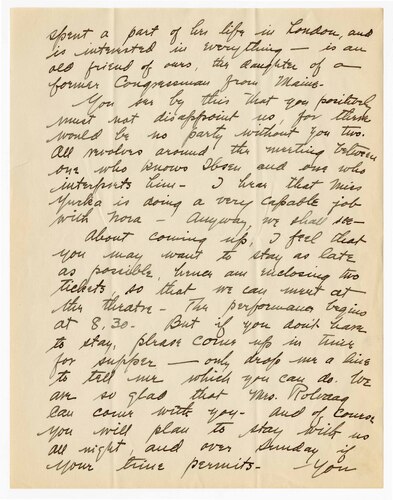 spent a part of her life in London, and
is interested in everything — is an
old friend of ours, the daughter of a
former Congressman from Maine.
You see by this that you positively
must not disappoint us, for there
would be no party without you two.
All revolves around the meeting between
one who knows Ibsen and one who
interprets him - I hear that Miss
Yurka is doing a very capable job
with Nora - Anyway, we shall see -
About coming up, I feel that
you may want to stay as late
as possible, hence am enclosing two
tickets, so that we can meet at
the theatre - The performance begins
at 8.30 - But if you don't have
to stay, please come up in time
for supper — only drop me a line
to tell me which you can do. We
are so glad that Mrs. Rolvaag
can come with you - and of course
you will plan to stay with us
all night and over Sunday if
your time permits - You